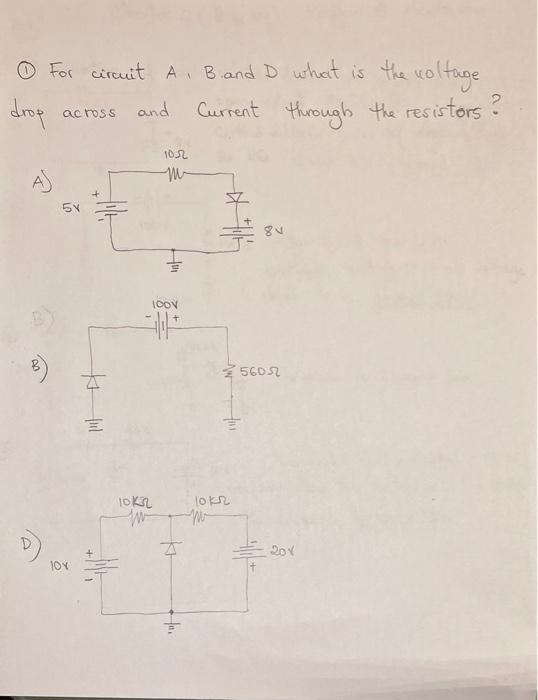 ① For circuit A, B and D what is the voltage
drop across and Current through the resistors?
10Ω
A)
+
5V
-
+
8V
-
100V
- +
B)
B)
560Ω
10KΩ 10KΩ
D)
+
10V
-
-
20V
+